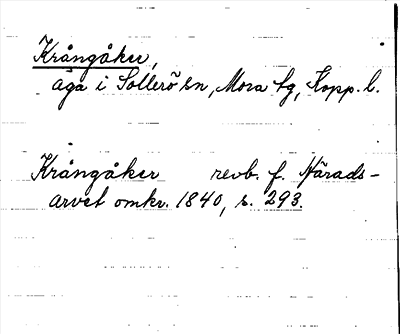 Krångåker,
äga i Sollerö sn, Mora tg, Kopp. l.
Krångåker revb. f. Härads-
arvet omkr. 1840, s. 293.